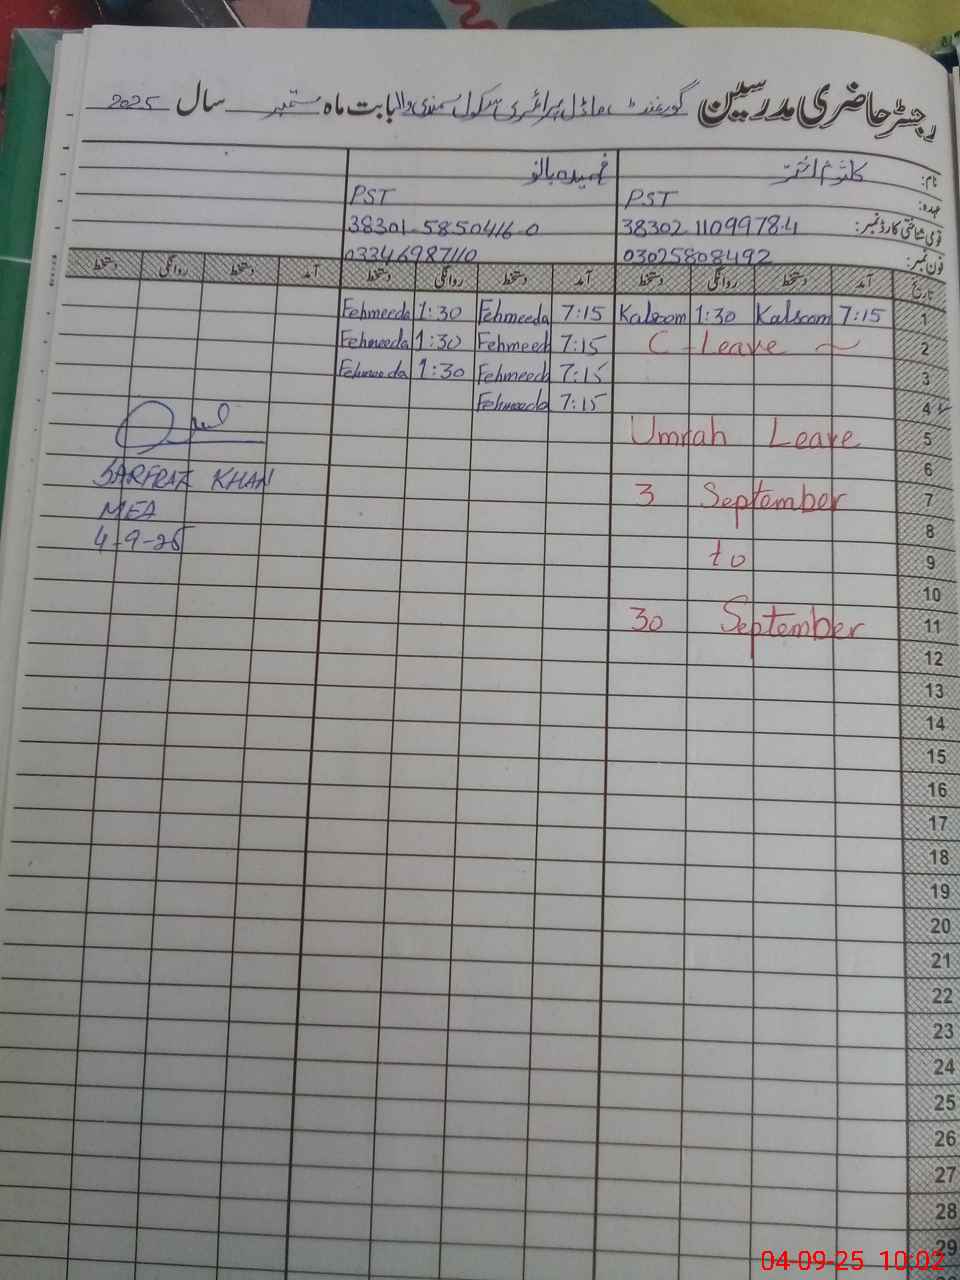 رجسٹر حاضری مدرسین گورنمنٹ ماڈل پرائمری سکول سمندی والا بابت ماہ ستمبر سال 2025
نام: کلثوم اختر فہمیدہ بانو
عہدہ: PST PST
قومی شناختی کارڈ نمبر: 38302 11099784 38301-5850416-0
فون نمبر: 03025808492 03346987110
تاریخ آمد دستخط روانگی دستخط آمد دستخط روانگی دستخط آمد دستخط روانگی دستخط
1 7:15 Kalsoom 1:30 Kalsoom 7:15 Fehmeeda 1:30 Fehmeeda
2 C-Leave 7:15 Fehmeed 1:30 Fehmeeda
3 7:15 Fehmeed 1:30 Fehmeeda
4 7:15 Fehmeeda
5 Umrah Leave
6
7 3 September
8
9 to
10
11 30 September
12
13
14
15
16
17
18
19
20
21
22
23
24
25
26
27
28
29
SARFRAZ KHAN
MEA
4-9-25
04-09-25 10:02